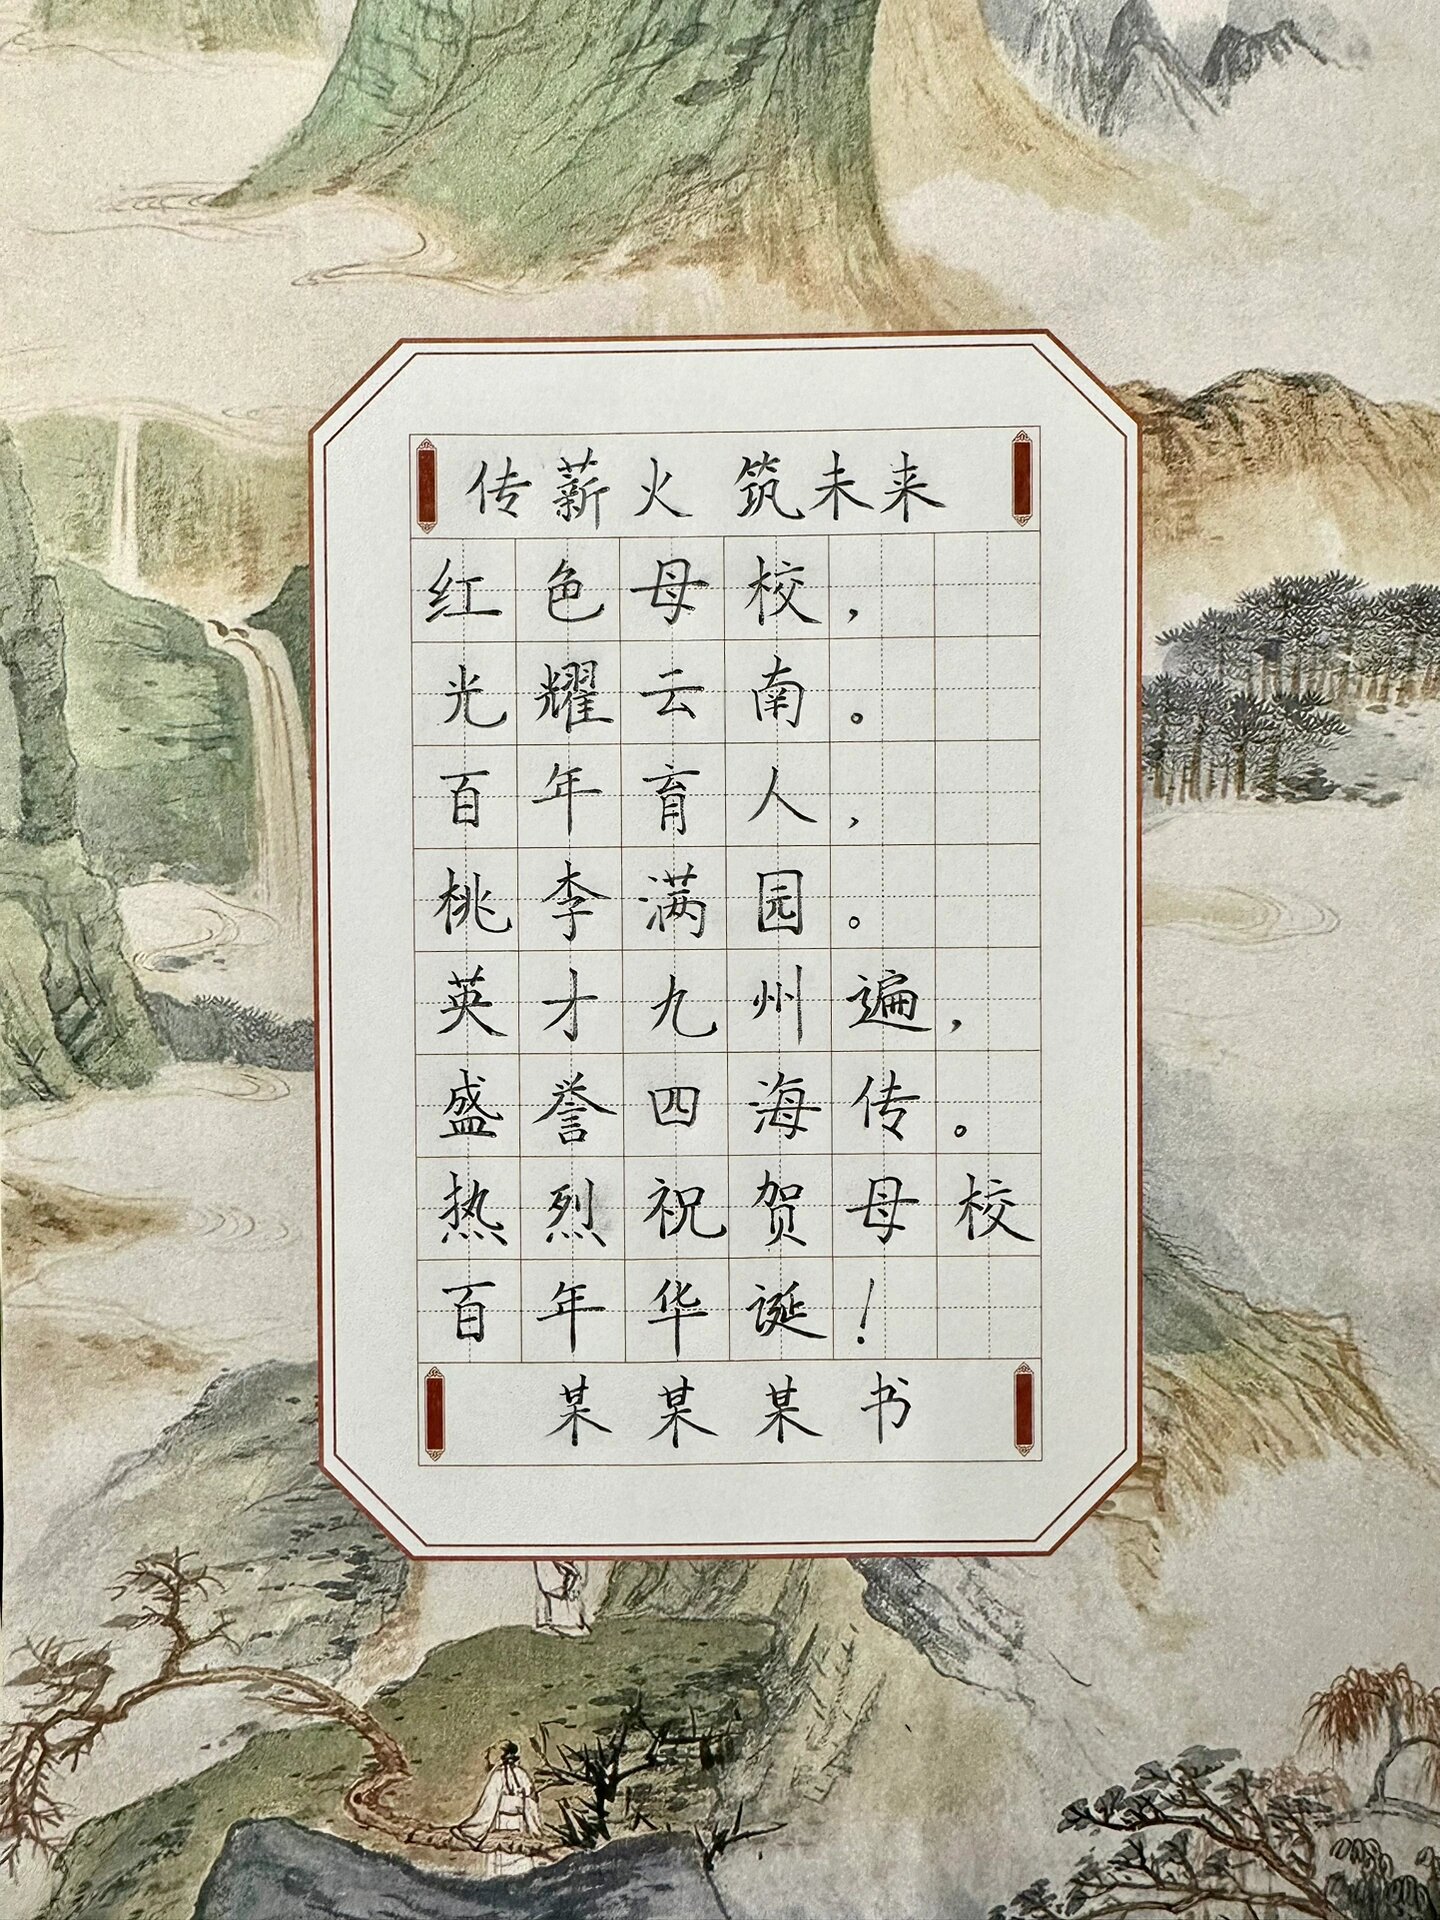 传薪火 筑未来
红色母校，
光耀云南。
百年育人，
桃李满园。
英才九州遍，
盛誉四海传。
热烈祝贺母校
百年华诞！
某某某书